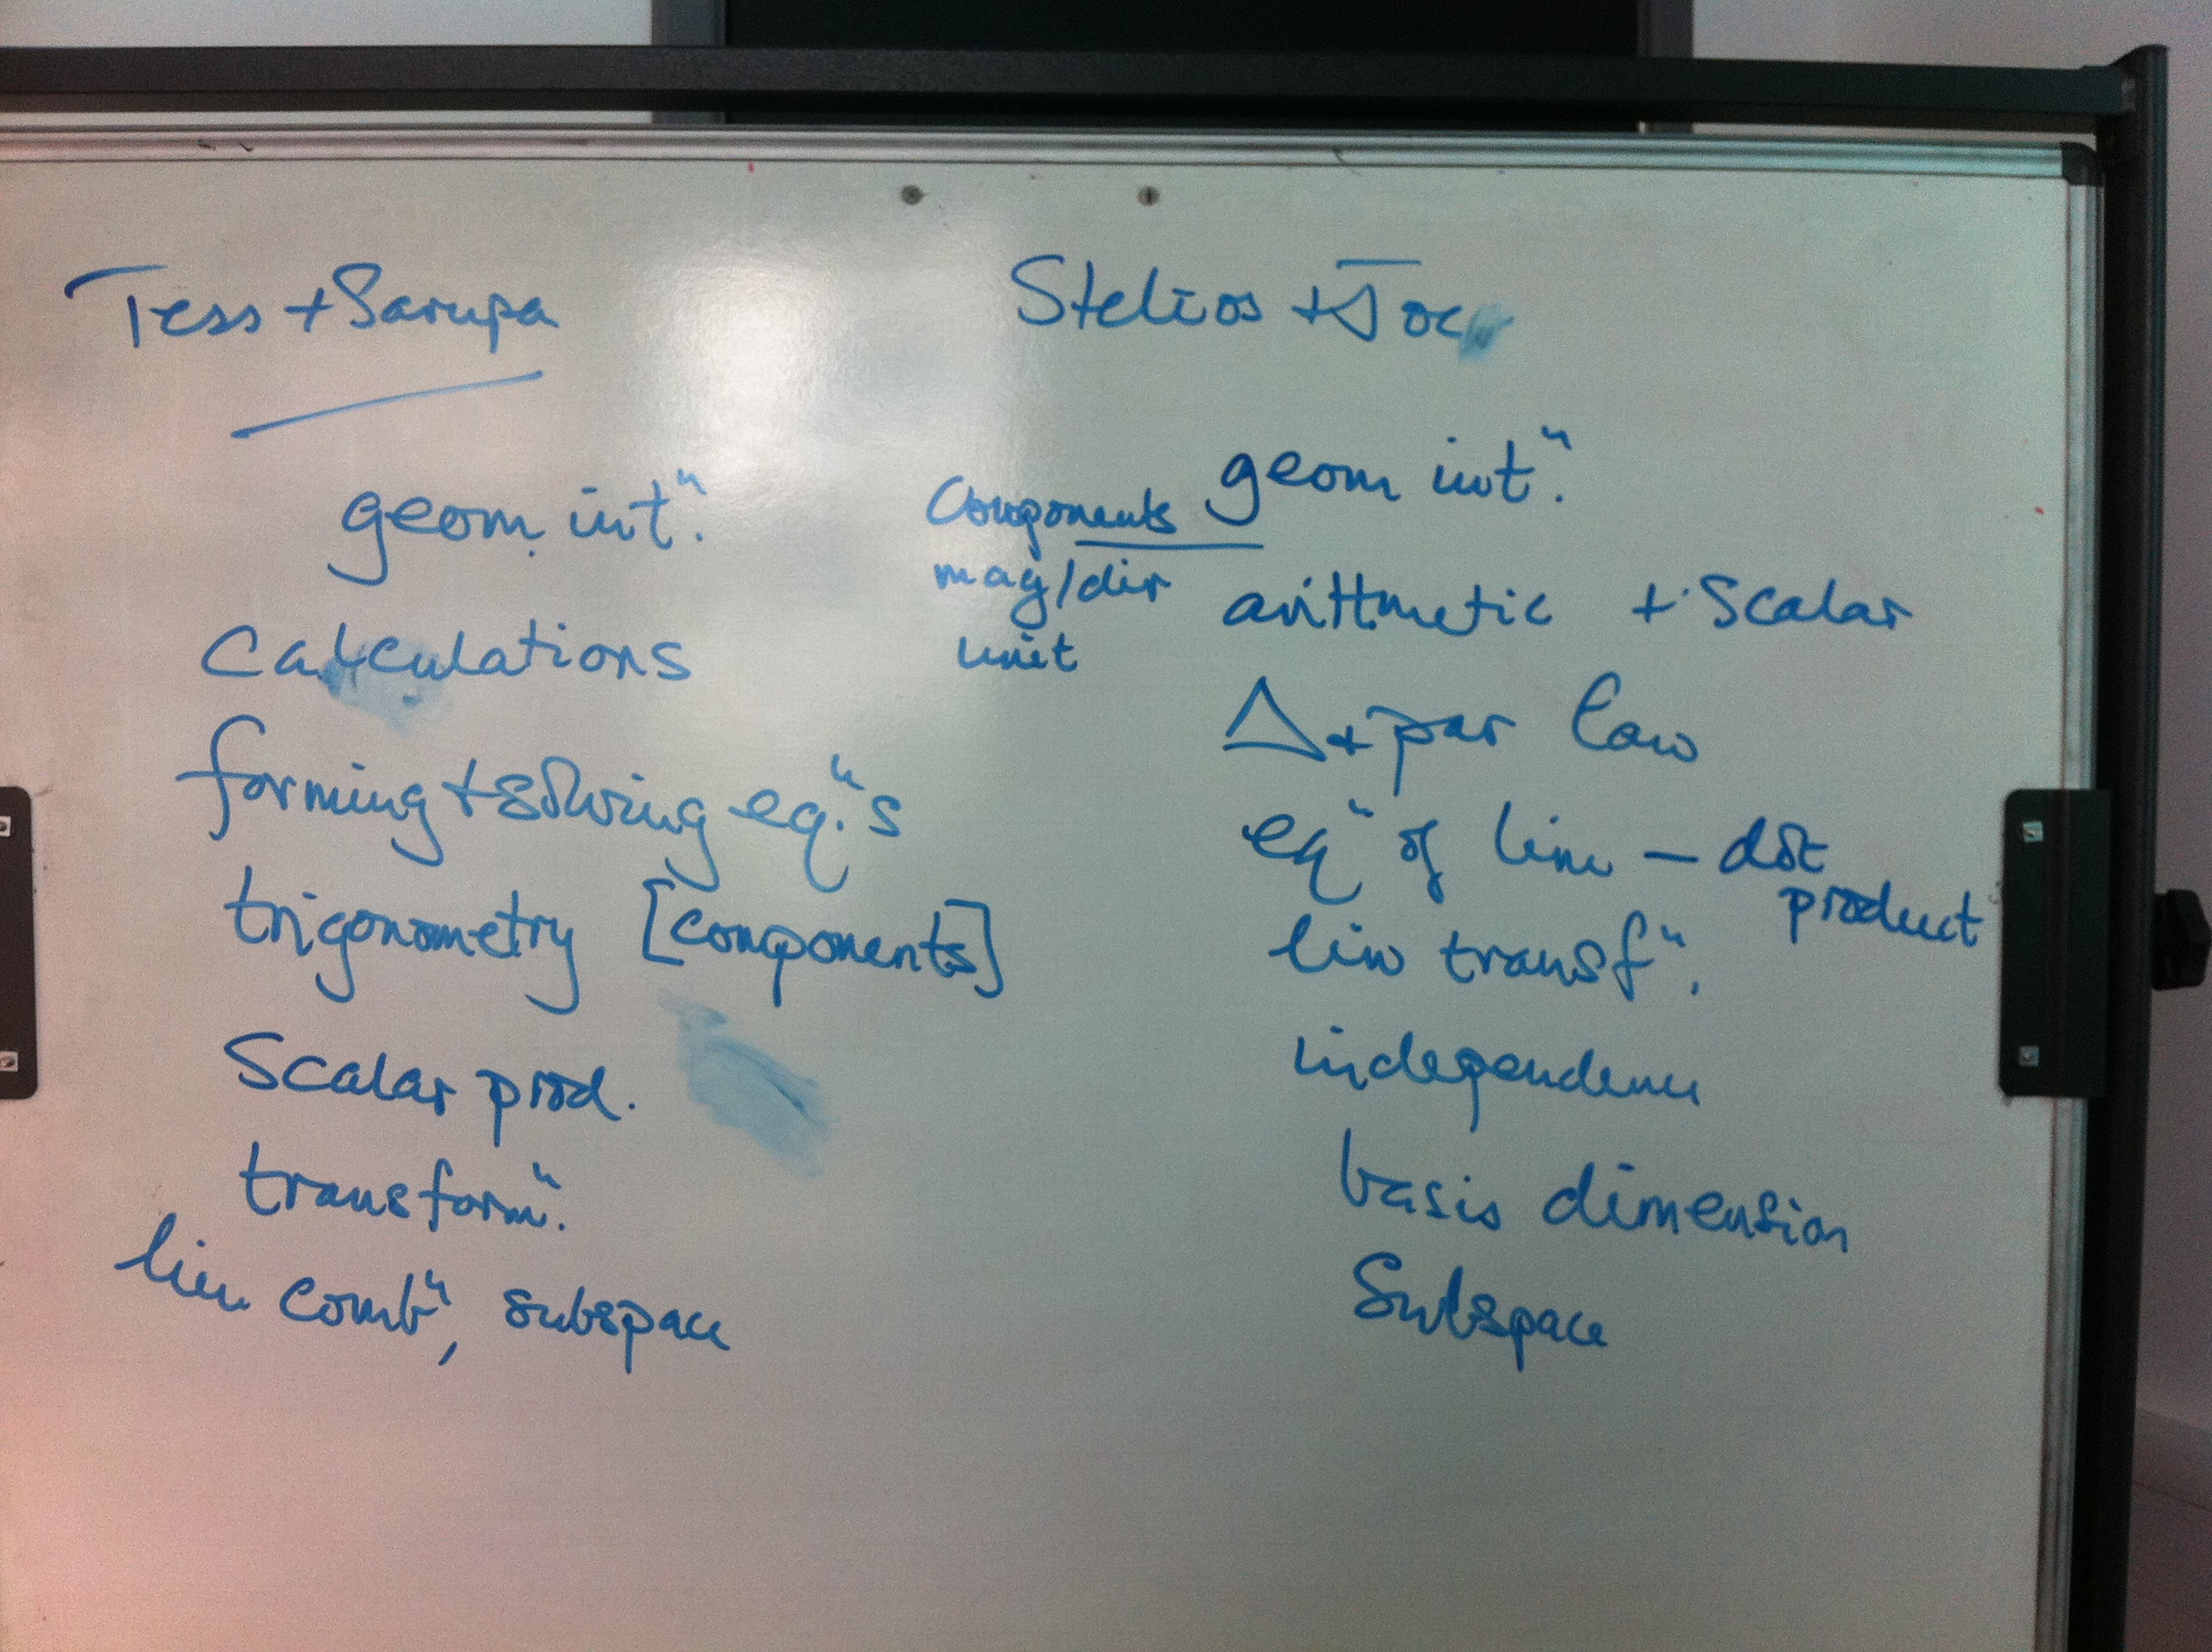 Tess + Sarupa
geom intⁿ.
Calculations
forming + solving eqⁿ.s
trigonometry [components]
Scalar prod.
transformⁿ.
lin. combⁿ, subspace
Stelios + Joe
geom intⁿ.
Components
mag/dir
unit
arithmetic + Scalar
△ + par law
eqⁿ of line – dot
product
lin transfⁿ.
independence
basis dimension
Subspace